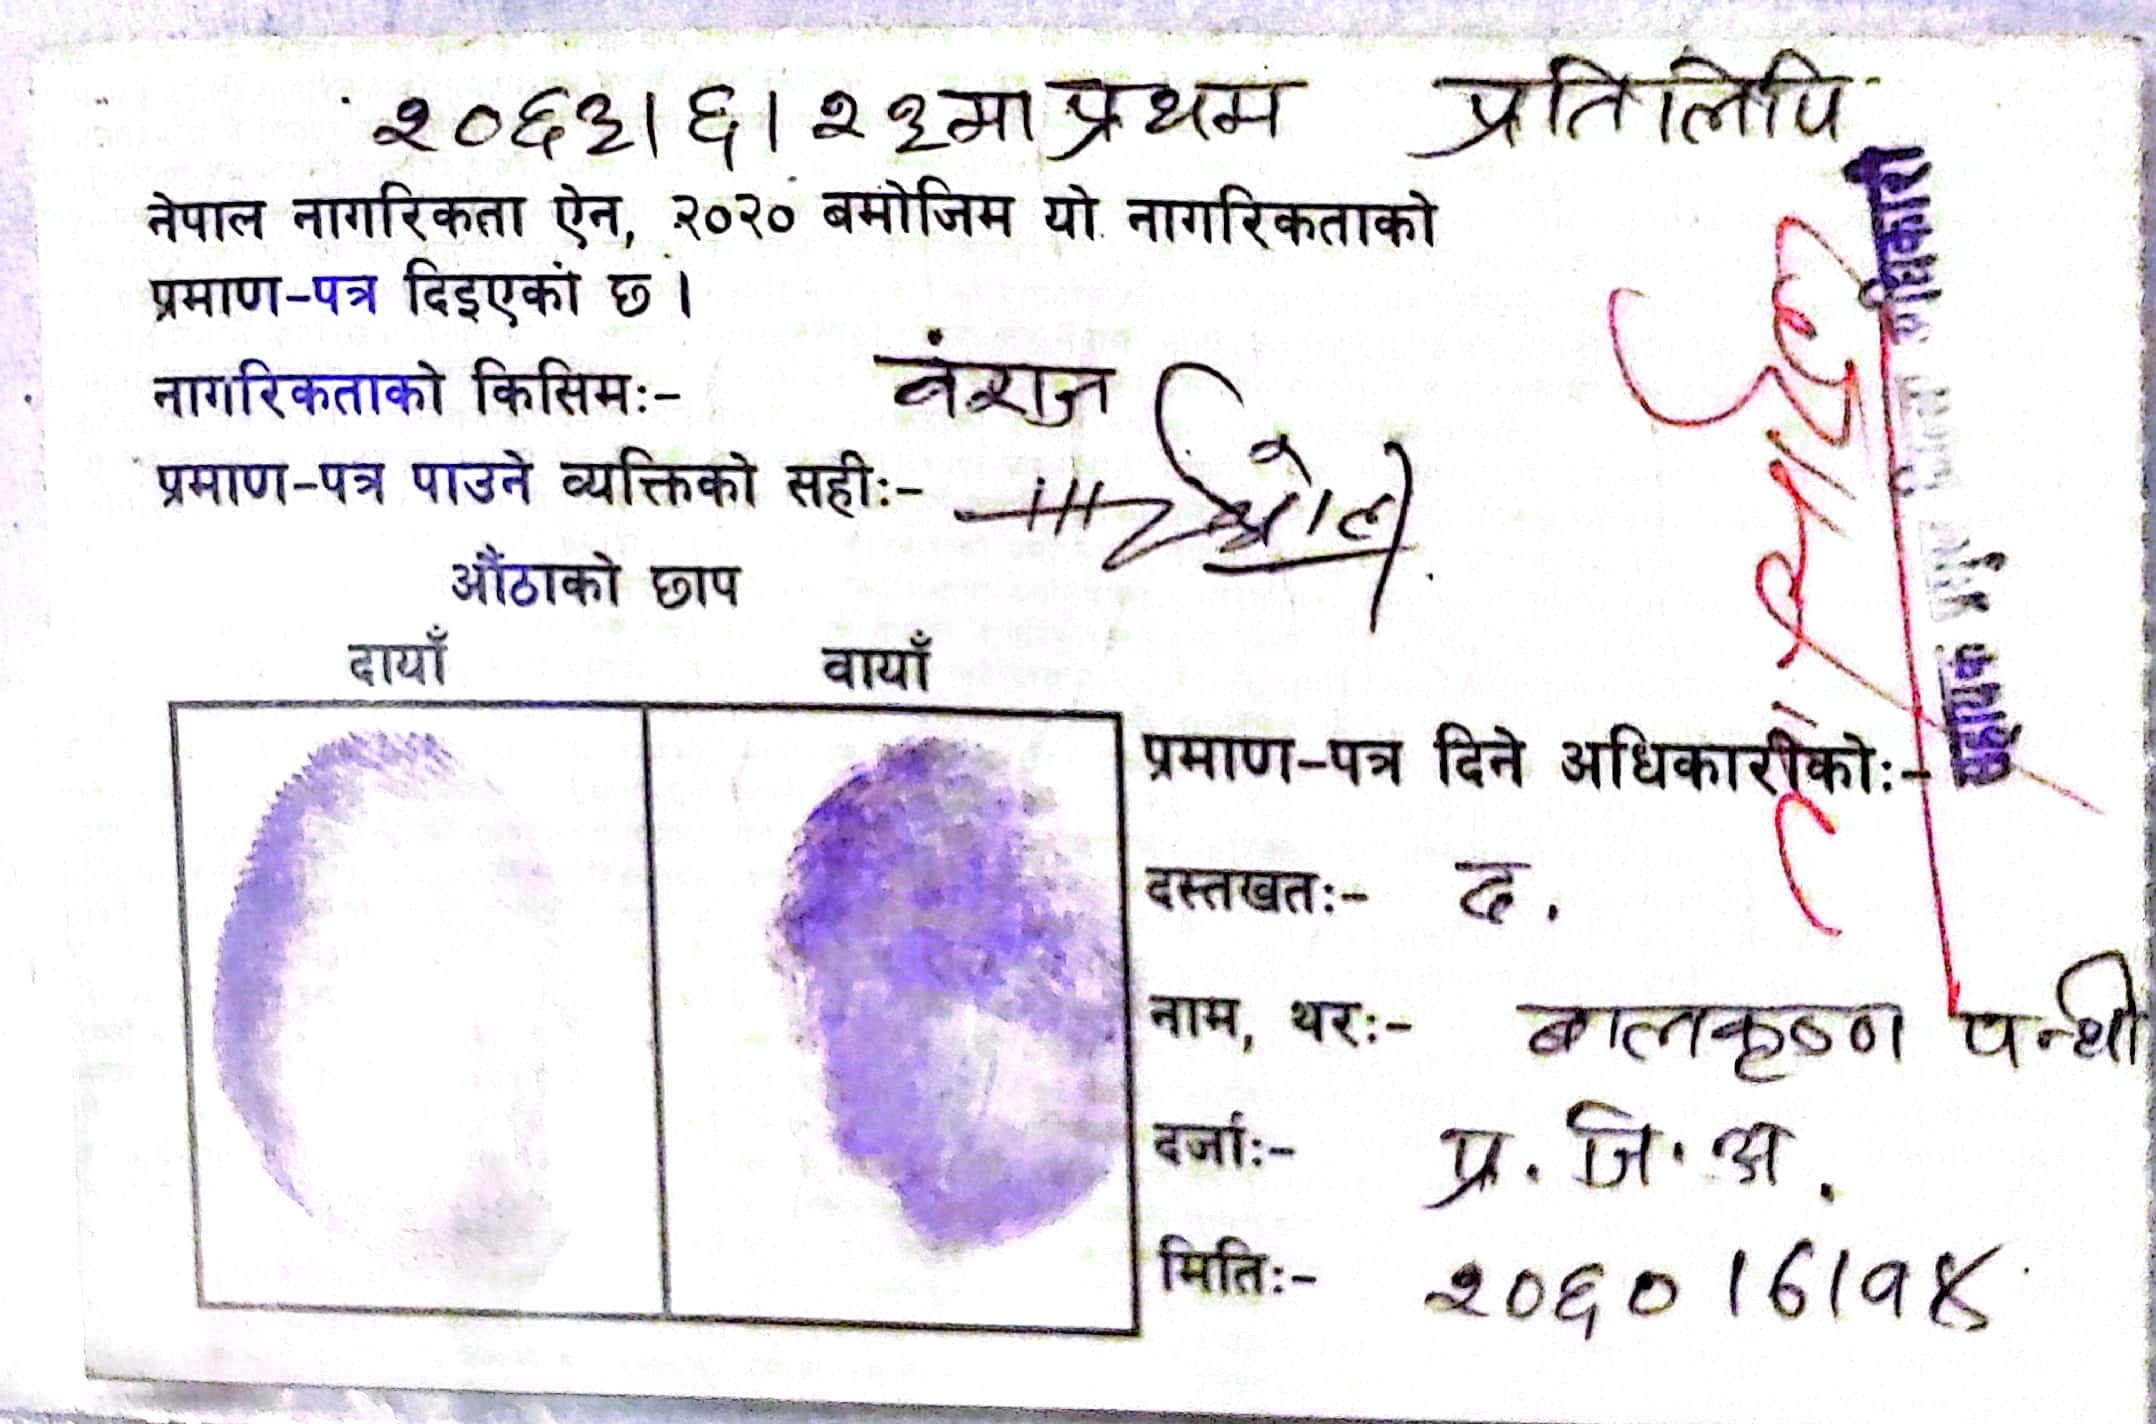 २०६३।६।२३मा प्रथम प्रतिलिपि
नेपाल नागरिकता ऐन, २०२० बमोजिम यो नागरिकताको
प्रमाण-पत्र दिइएको छ ।
नागरिकताको किसिमः- वंशज
प्रमाण-पत्र पाउने व्यक्तिको सहीः-
औंठाको छाप
दायाँ वायाँ
प्रमाण-पत्र दिने अधिकारीकोः-
दस्तखतः- द.
नाम, थरः- बालकृष्ण पन्थी
दर्जाः- प्र. जि. अ.
मितिः- २०६०।७।१४
सहायक प्रमुख जिल्ला अधिकारी